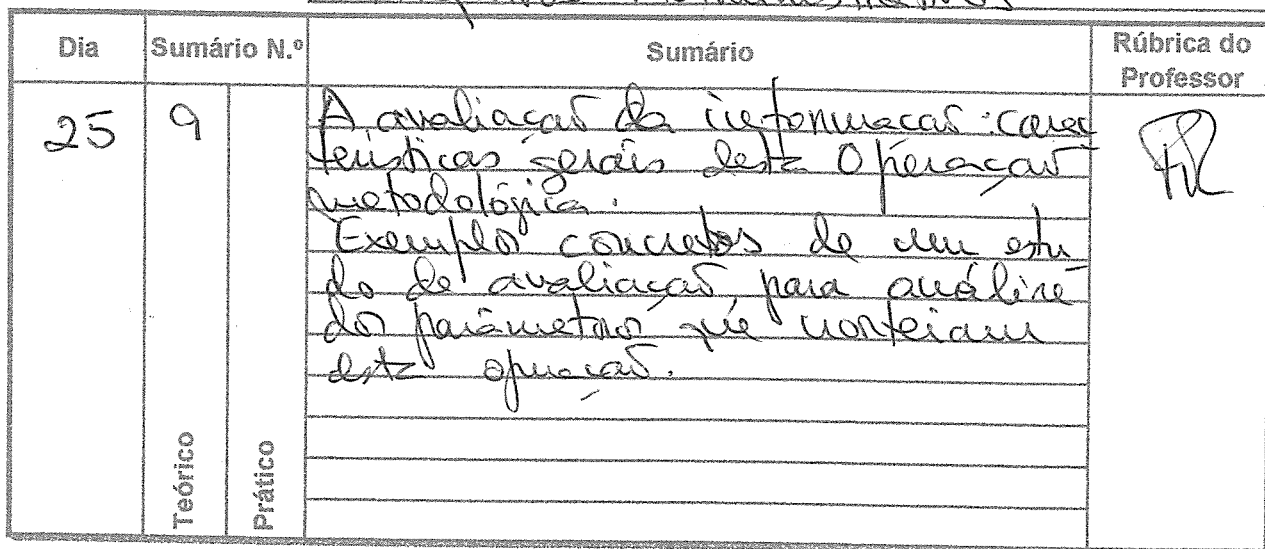 Dia Sumário N.º Sumário Rúbrica do Professor
25 9 A avaliação da informação: carac
terísticas gerais desta Operação
metodológica.
Exemplos concretos de um estu
do de avaliação, para análise
dos parâmetros que norteiam
esta operação.
Teórico Prático